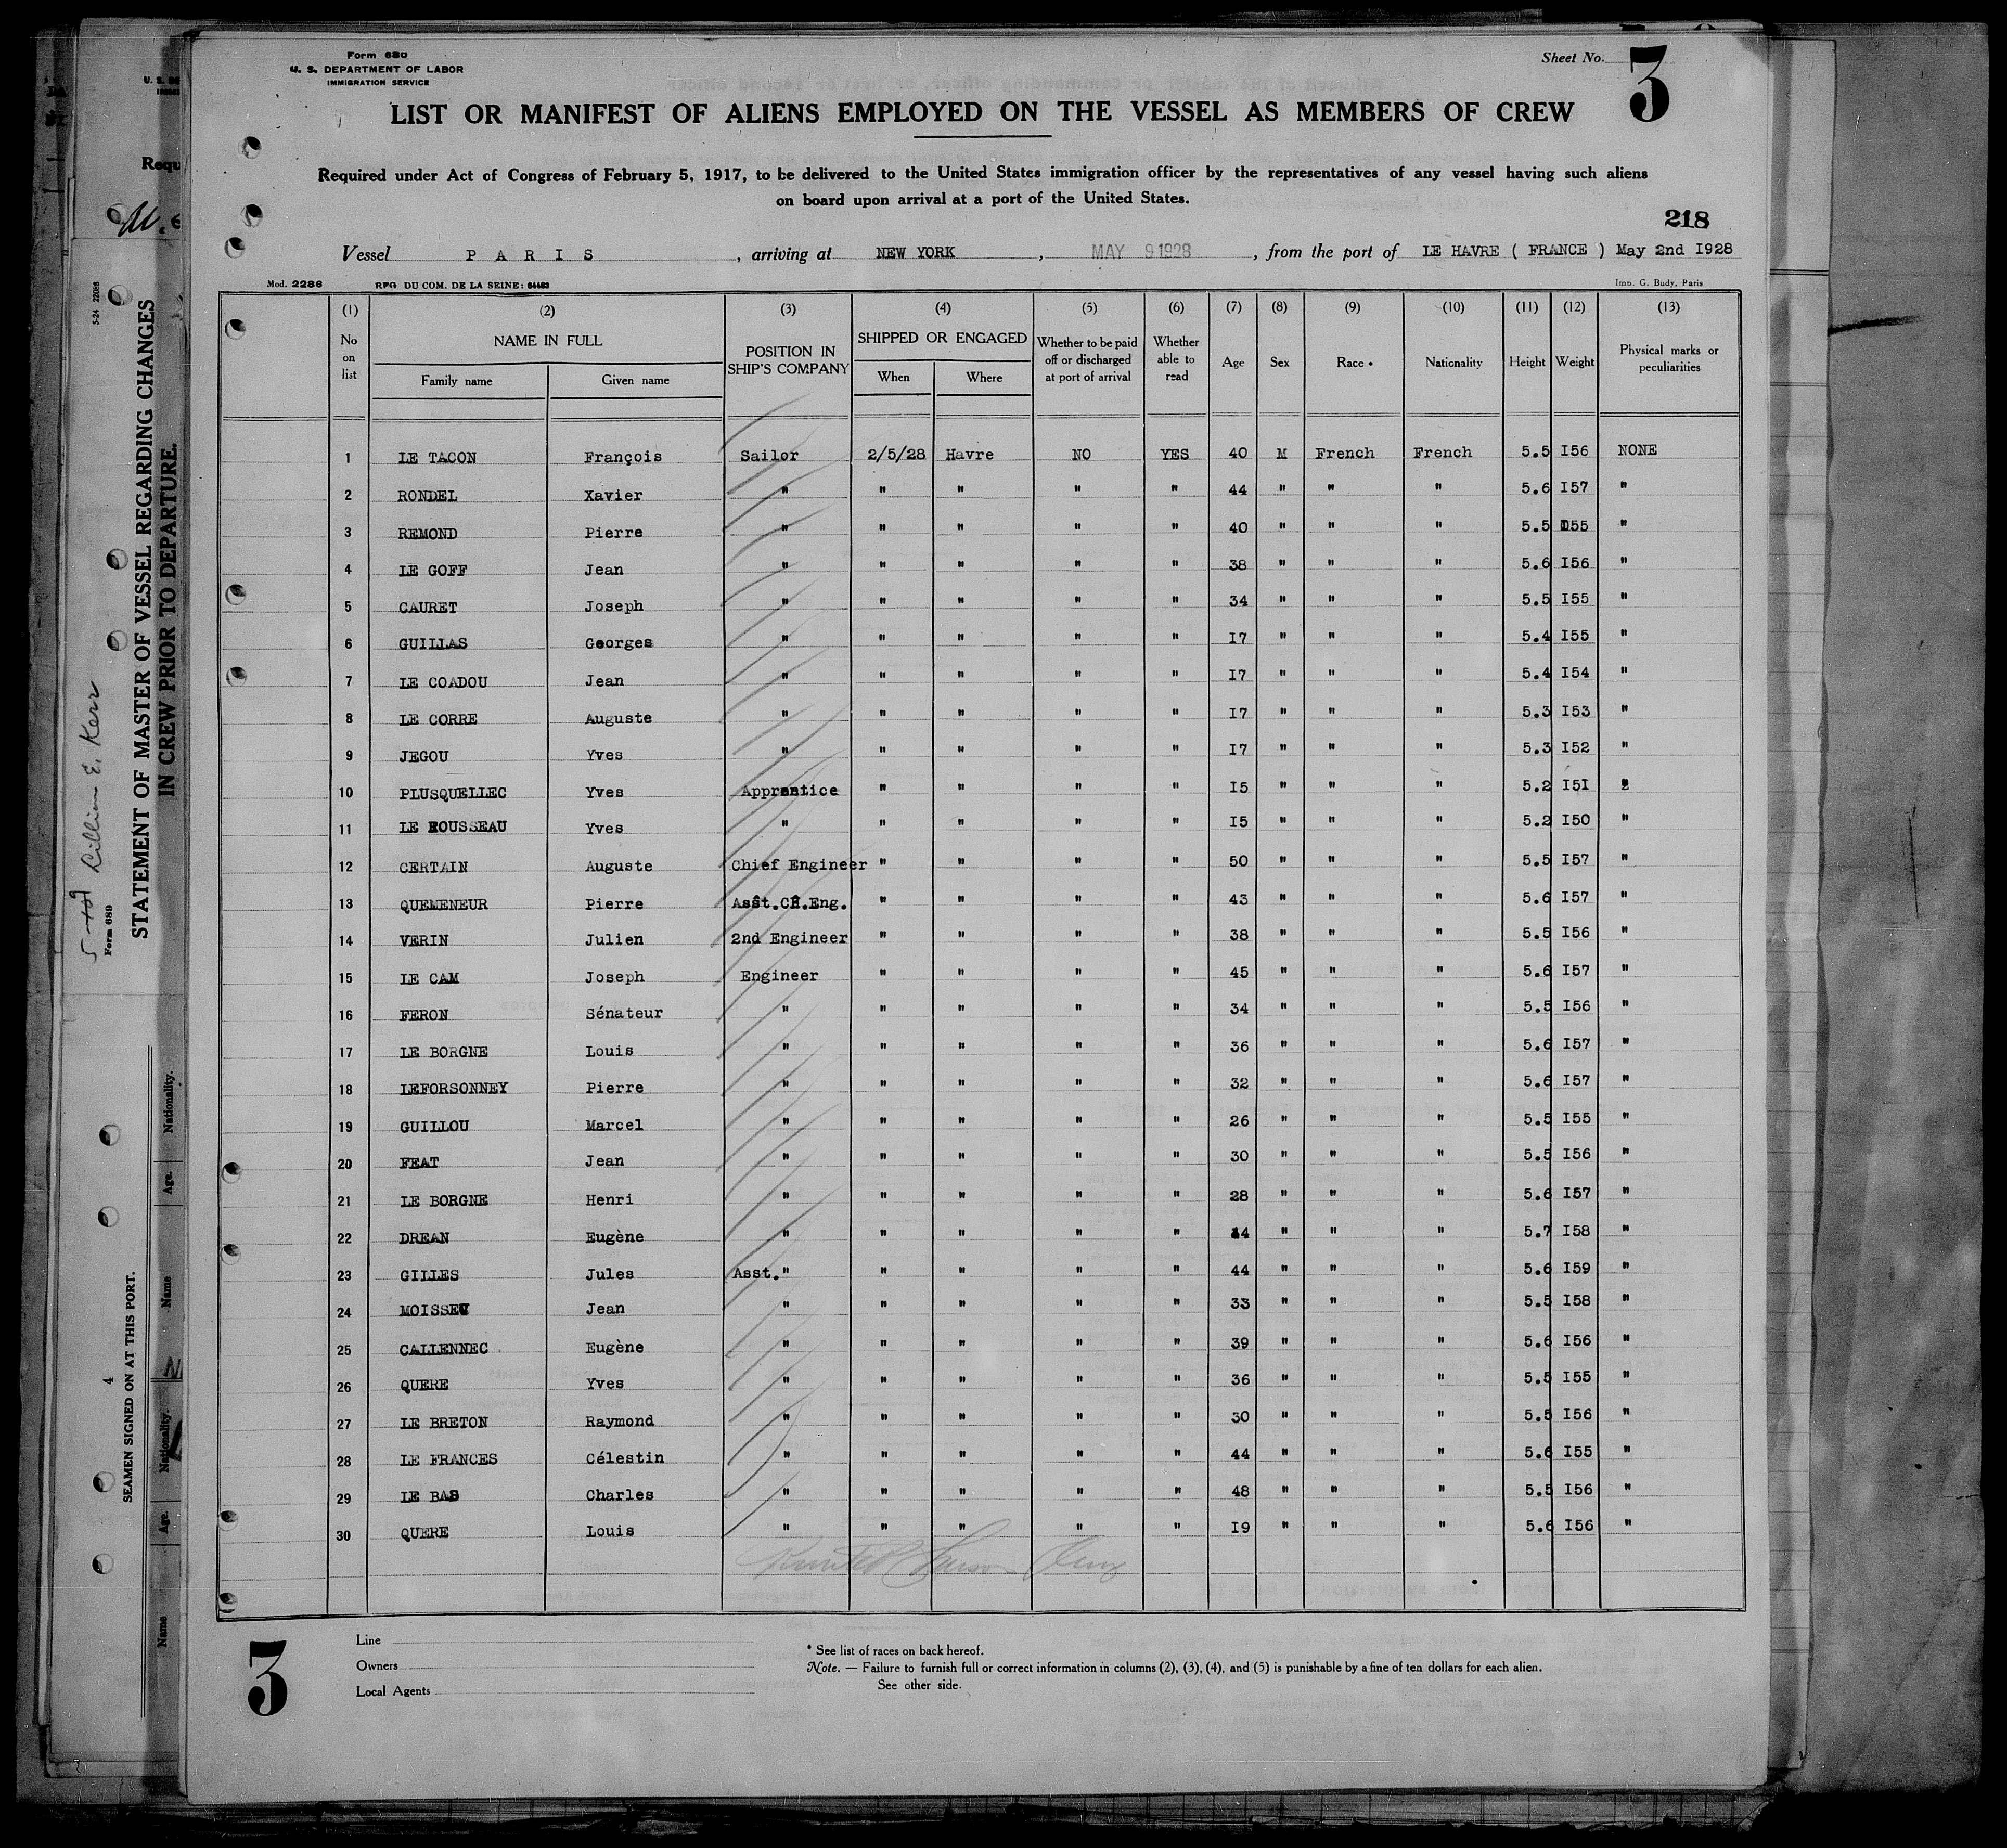 Form 680
U. S. DEPARTMENT OF LABOR
IMMIGRATION SERVICE
Sheet No. 3
LIST OR MANIFEST OF ALIENS EMPLOYED ON THE VESSEL AS MEMBERS OF CREW
Required under Act of Congress of February 5, 1917, to be delivered to the United States immigration officer by the representatives of any vessel having such aliens
on board upon arrival at a port of the United States.
218
Vessel PARIS, arriving at NEW YORK, MAY 9 1928, from the port of LE HAVRE ( FRANCE ) May 2nd I928
Mod. 2286 REG DU COM. DE LA SEINE: 64483 Imp. G. Budy. Paris
(1) (2) (3) (4) (5) (6) (7) (8) (9) (10) (11) (12) (13)
No on list NAME IN FULL Family name Given name POSITION IN SHIP'S COMPANY SHIPPED OR ENGAGED When Where Whether to be paid off or discharged at port of arrival Whether able to read Age Sex Race * Nationality Height Weight Physical marks or peculiarities
1 LE TACON François Sailor 2/5/28 Havre NO YES 40 M French French 5.5 I56 NONE
2 RONDEL Xavier " " " " " 44 " " " 5.6 I57 "
3 REMOND Pierre " " " " " 40 " " " 5.5 I55 "
4 LE GOFF Jean " " " " " 38 " " " 5.6 I56 "
5 CAURET Joseph " " " " " 34 " " " 5.5 I55 "
6 GUILLAS Georges " " " " " I7 " " " 5.4 I55 "
7 LE COADOU Jean " " " " " I7 " " " 5.4 I54 "
8 LE CORRE Auguste " " " " " I7 " " " 5.3 I53 "
9 JEGOU Yves " " " " " I7 " " " 5.3 I52 "
10 PLUSQUELLEC Yves Apprentice " " " " I5 " " " 5.2 I5I "
11 LE ROUSSEAU Yves " " " " " I5 " " " 5.2 I50 "
12 CERTAIN Auguste Chief Engineer " " " " 50 " " " 5.5 I57 "
13 QUEMENEUR Pierre Asst.CH.Eng. " " " " 43 " " " 5.6 I57 "
14 VERIN Julien 2nd Engineer " " " " 38 " " " 5.5 I56 "
15 LE CAM Joseph Engineer " " " " 45 " " " 5.6 I57 "
16 FERON Sénateur " " " " " 34 " " " 5.5 I56 "
17 LE BORGNE Louis " " " " " 36 " " " 5.6 I57 "
18 LEFORSONNEY Pierre " " " " " 32 " " " 5.6 I57 "
19 GUILLOU Marcel " " " " " 26 " " " 5.5 I55 "
20 FEAT Jean " " " " " 30 " " " 5.5 I56 "
21 LE BORGNE Henri " " " " " 28 " " " 5.6 I57 "
22 DREAN Eugène " " " " " 44 " " " 5.7 I58 "
23 GILLES Jules Asst." " " " " 44 " " " 5.6 I59 "
24 MOISSEU Jean " " " " " 33 " " " 5.5 I58 "
25 CALLENNEC Eugène " " " " " 39 " " " 5.6 I56 "
26 QUERE Yves " " " " " 36 " " " 5.5 I55 "
27 LE BRETON Raymond " " " " " 30 " " " 5.5 I56 "
28 LE FRANCES Célestin " " " " " 44 " " " 5.6 I55 "
29 LE BAS Charles " " " " " 48 " " " 5.5 I56 "
30 QUERE Louis " " " " " I9 " " " 5.6 I56 "
3
Line
Owners
Local Agents
* See list of races on back hereof.
Note. — Failure to furnish full or correct information in columns (2), (3), (4), and (5) is punishable by a fine of ten dollars for each alien.
See other side.
Form 689
STATEMENT OF MASTER OF VESSEL REGARDING CHANGES
IN CREW PRIOR TO DEPARTURE.
Lillian E. Kerr
4
SEAMEN SIGNED ON AT THIS PORT.
Name Age. Nationality. Name Age. Nationality.